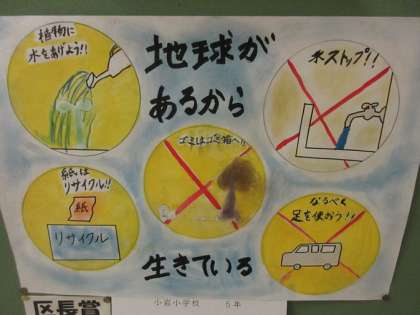 植物に
水をあげよう!!
地球が
あるから
水ストップ!!
ゴミはゴミ箱へ!!
紙は
リサイクル!!
紙
リサイクル
なるべく
足を使おう!!
生きている
区長賞
小岩小学校 5年